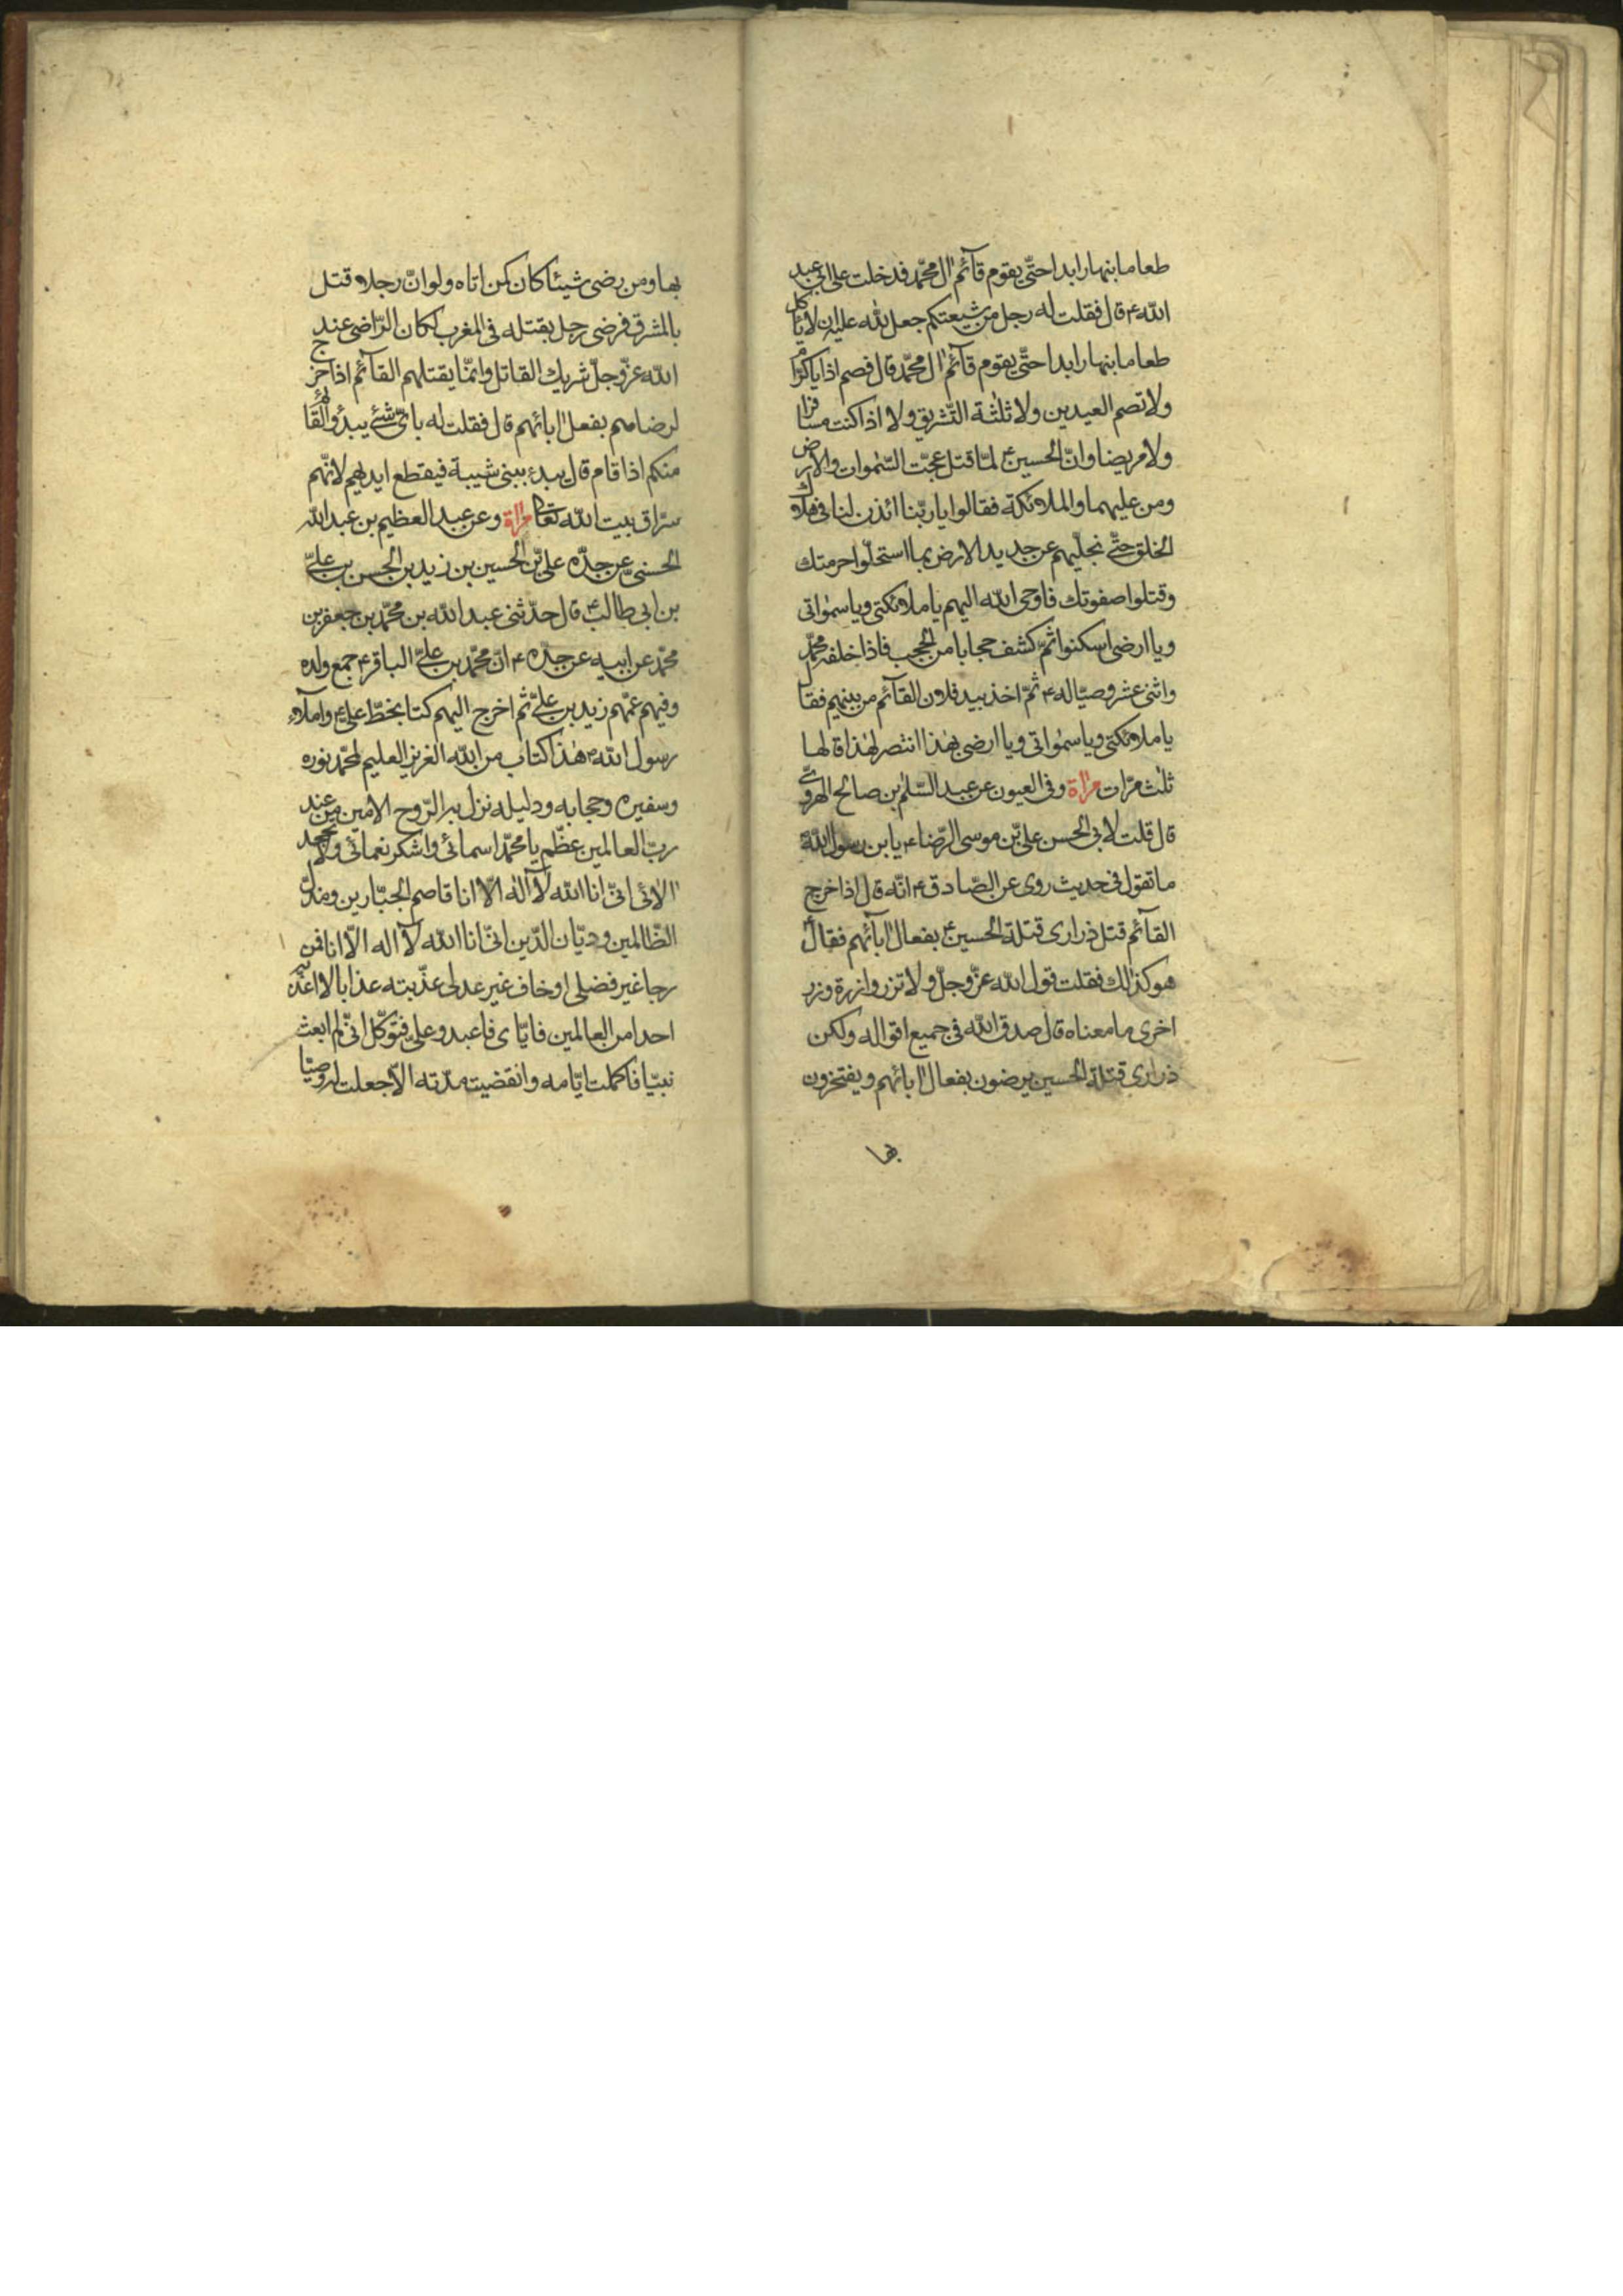 طعاما بنهار ابدا حتّى يقوم قآئم اٰل محمّد فدخلت على ابى عبد
اللّه ؏ قال فقلت له رجل من شيعتكم جعل للّه عليه ان لا ياكل
طعاما بنهار ابدا حتّى يقوم قآئم اٰل محمّد قال فصم اذا يا كرّام
ولا تصم العيدين ولا ثلثة التّشريق ولا اذا كنت مسافرا
ولا مريضا وانّ الحسين ؏ لمّا قتل عجّت السّمٰوات والارض
ومن عليهما والملائكة فقالوا يا ربّنا ائذن لنا فى هلاك
الخلق حتّى نجلّيهم عن جديد الارض بما استحلّوا حرمتك
وقتلوا صفوتك فاوحى اللّه اليهم يا ملائكتى ويا سمٰواتى
ويا ارضى اسكنوا ثمّ كشف حجابا من الحجب فاذا خلفه محمّد
واثنى عشر وصيّا له ؏ ثمّ اخذ بيد فلان القآئم من بينهم فقال
يا ملائكتى ويا سمٰواتى ويا ارضى بهٰذا انتصر لهٰذا قالها
ثلٰث مرّات مرٰاة وفى العيون عن عبد السّلٰم بن صالح الهروىّ
قال قلت لابى الحسن علىّ بن موسى الرّضاء ؏ يابن رسول اللّه
ما تقول فى حديث روى عن الصّادق ؏ انّه قال اذا خرج
القآئم قتل ذرارى قتلة الحسين ؏ بفعال اٰبآئهم فقال
هو كذٰلك فقلت قول اللّه عزّ وجلّ ولا تزر وازرة وزر
اخرى ما معناه قال صدق اللّه فى جميع اقواله ولكن
ذرارى قتلة الحسين يرضون بفعال اٰبائهم ويفتخرون
بها
بها ومن رضى شيئا كان كمن اتاه ولو انّ رجلا قتل
بالمشرق فرضى رجل بقتله فى المغرب لكان الرّاضى عند
اللّه عزّ وجلّ شريك القاتل وانّما يقتلهم القآئم اذا خرج
لرضاهم بفعل اٰبائهم قال فقلت له باىّ شئ يبدؤ القائم
منكم اذا قام قال يبدء ببنى شيبة فيقطع ايديهم لانّهم
سرّاق بيت اللّه تعالى مرٰاة وعن عبد العظيم بن عبد اللّه
الحسنىّ عن جدّه علىّ بن الحسين بن زيد بن الحسن بن علىّ
بن ابى طالب ؏ قال حدّثنى عبد اللّه بن محمّد بن جعفر بن
محمّد عن ابيه عن جدّه ؏ انّ محمّد بن علىّ الباقر ؏ جمع ولده
وفيهم عمّهم زيد بن علىّ ثمّ اخرج اليهم كتابا بخطّ علىّ ؏ واملآء
رسول اللّه ؏ هٰذا كتاب من اللّه العزيز العليم لمحمّد نوره
وسفيره وحجابه ودليله نزل به الرّوح الامين من عند
ربّ العالمين عظّم يا محمّد اسمائى واشكر نعمائى ولا تجحد
اٰلائى انّى انا اللّه لآ الٰه الّا انا قاصم الجبّارين ومذلّ
الظّالمين وديّان الدّين انّى انا اللّه لآ اله الّا انا فمن
رجا غير فضلى او خاف غير عدلى عذّبته عذابا لا اعذّبه
احدا من العالمين فايّاى فاعبد وعلىّ فتوكّل انّى لم ابعث
نبيّا فاكملت ايّامه وانقضيت مدّته الّا جعلت له وصيّا